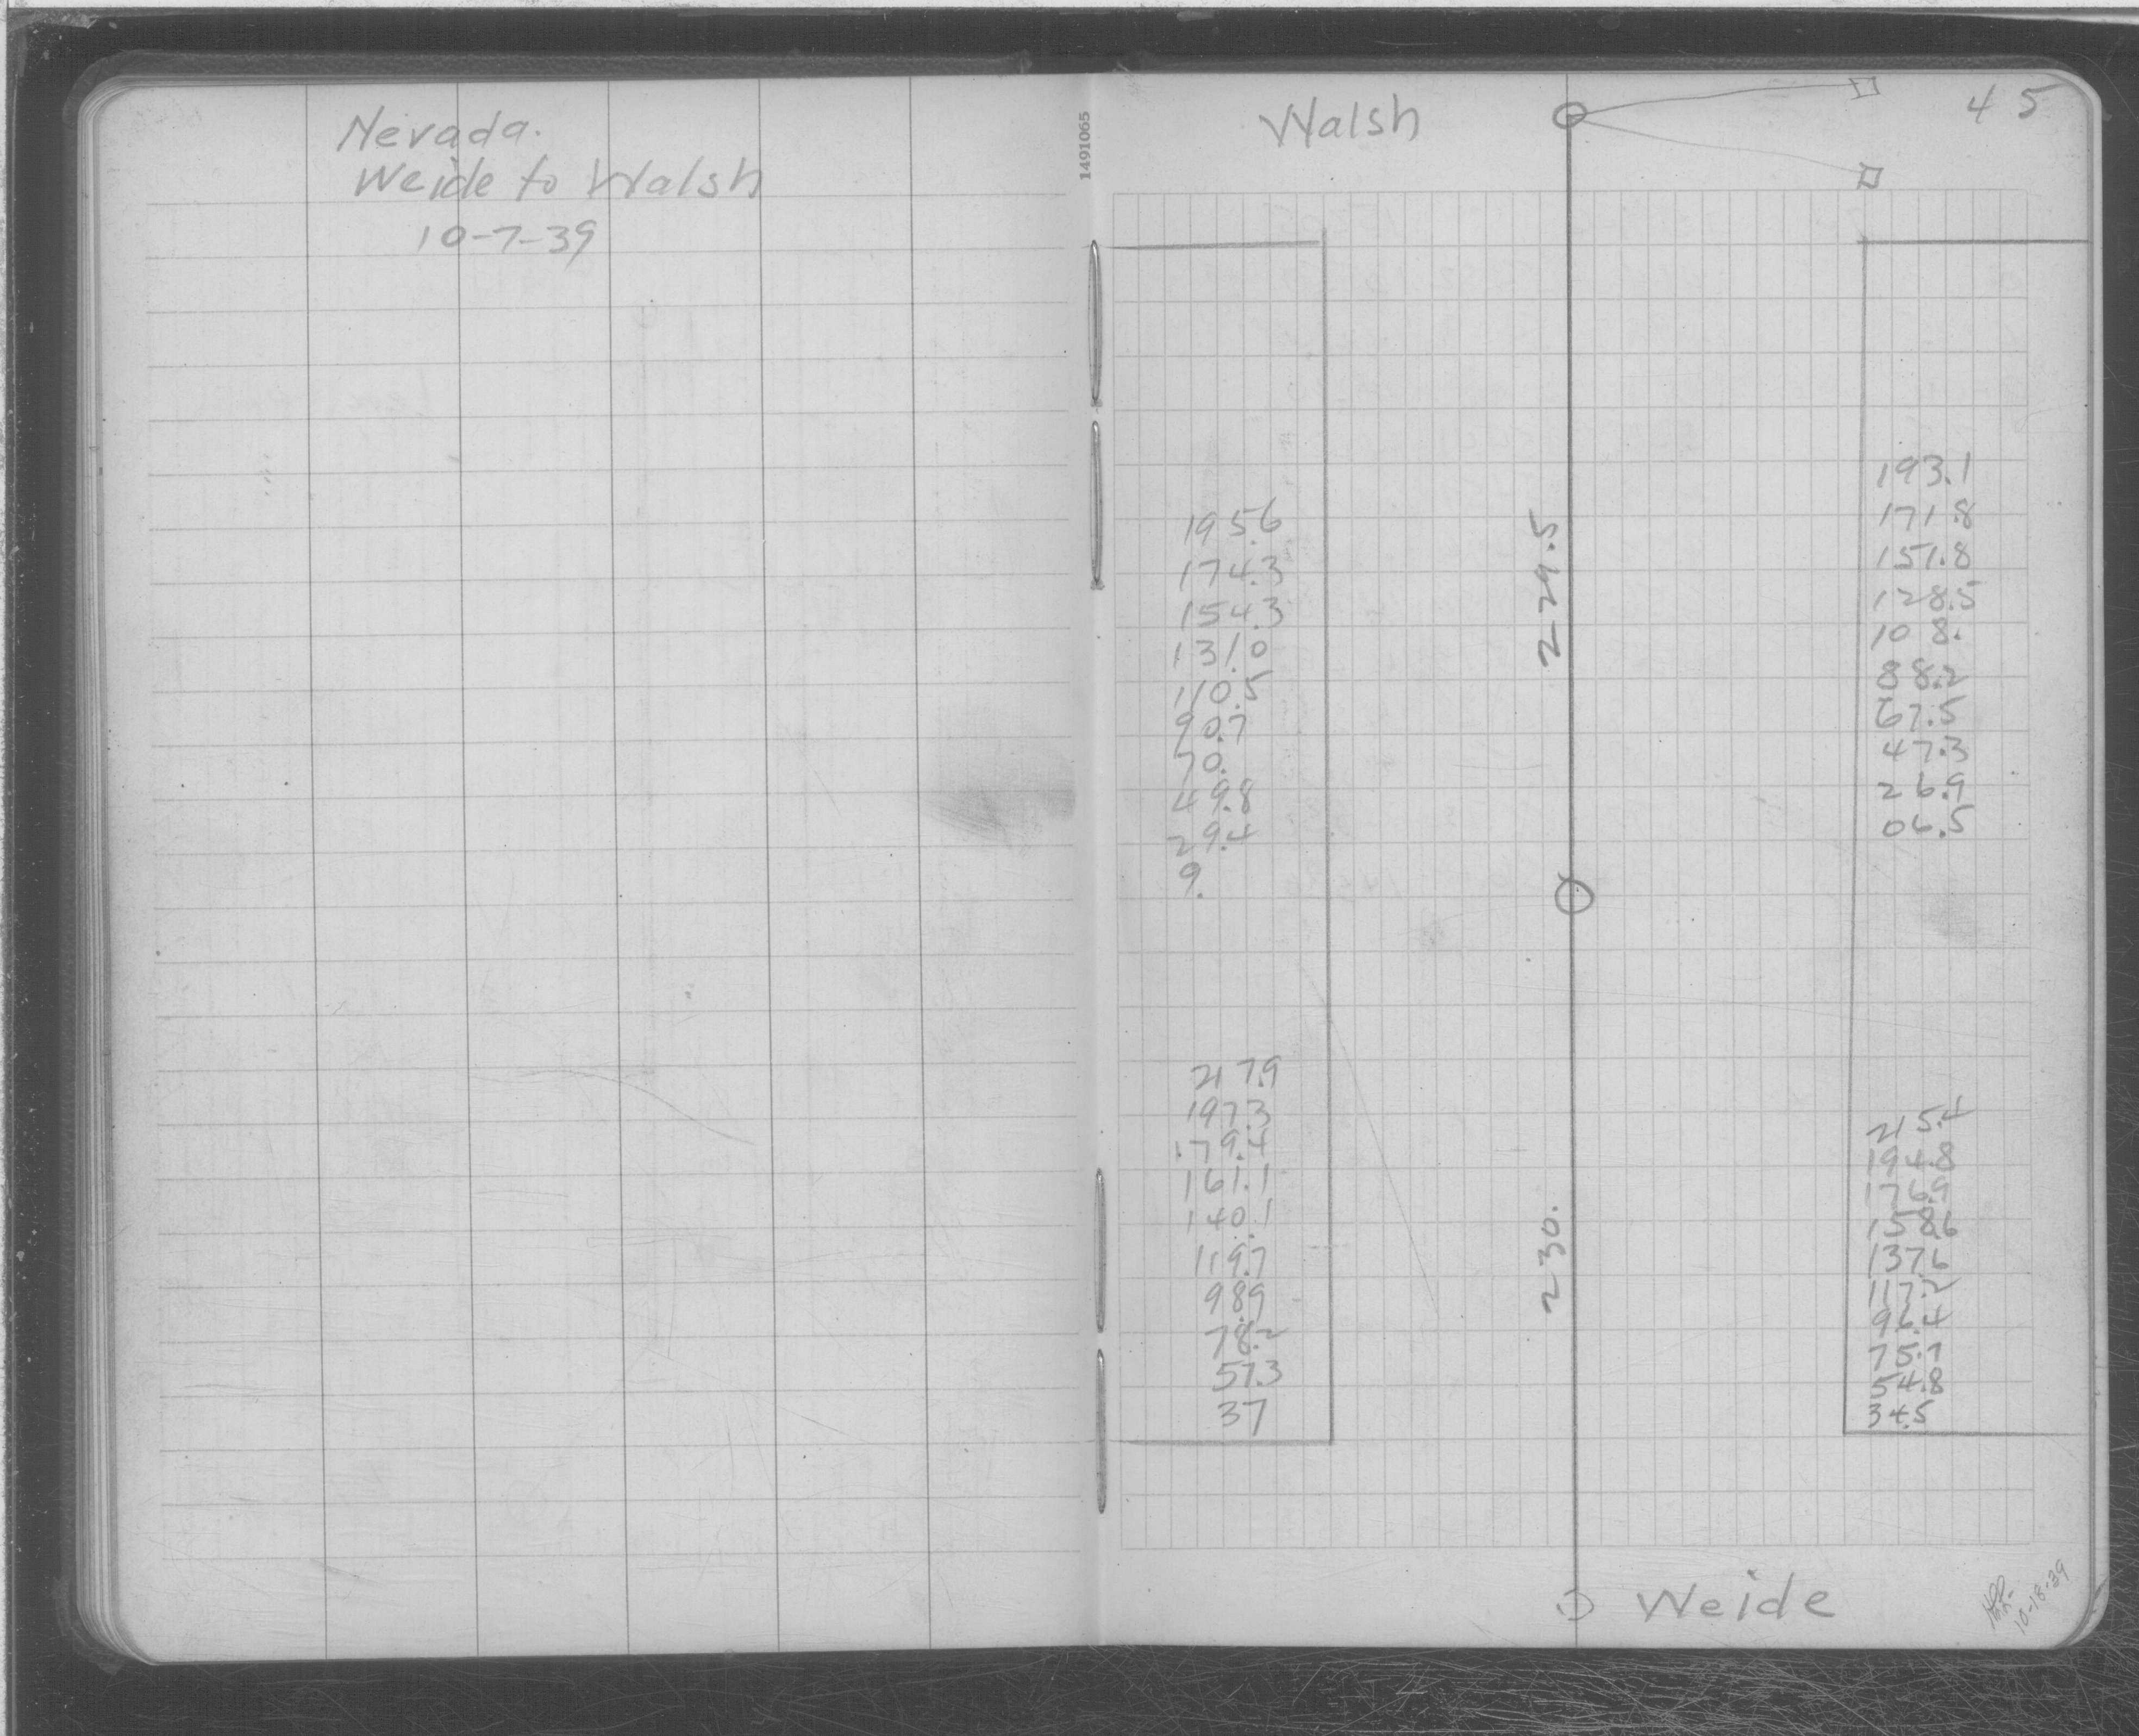 Nevada.
Weide to Walsh
10-7-39
1491065
Walsh
45
195.6
174.3
154.3
131.0
110.5
90.7
70.
49.8
29.4
9.
229.5
193.1
171.8
151.8
128.5
108.
88.2
67.5
47.3
26.9
06.5
217.9
197.3
179.4
161.1
140.1
119.7
98.9
78.2
57.3
37
230.
215.4
194.8
176.9
158.6
137.6
117.2
96.4
75.7
54.8
34.5
Weide
10-18-39